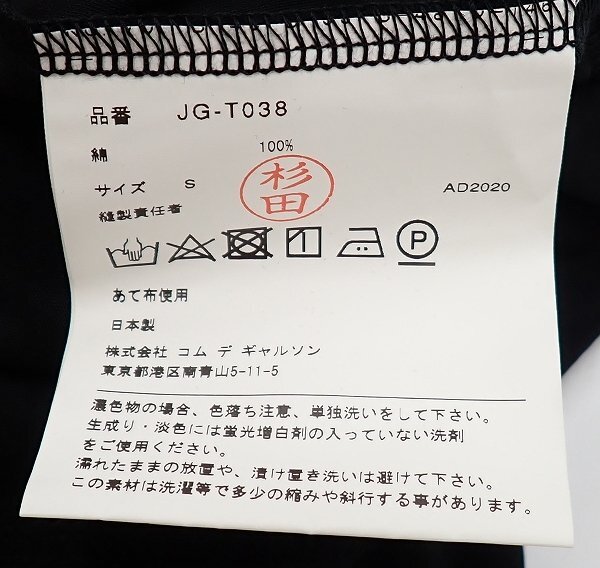 品番 JG-T038
綿 100%
サイズ S 杉田 AD2020
縫製責任者
P
あて布使用
日本製
株式会社 コム デ ギャルソン
東京都港区南青山5-11-5
濃色物の場合、色落ち注意、単独洗いをして下さい。
生成り・淡色には蛍光増白剤の入っていない洗剤
をご使用ください。
濡れたままの放置や、漬け置き洗いは避けて下さい。
この素材は洗濯等で多少の縮みや斜行する事があります。